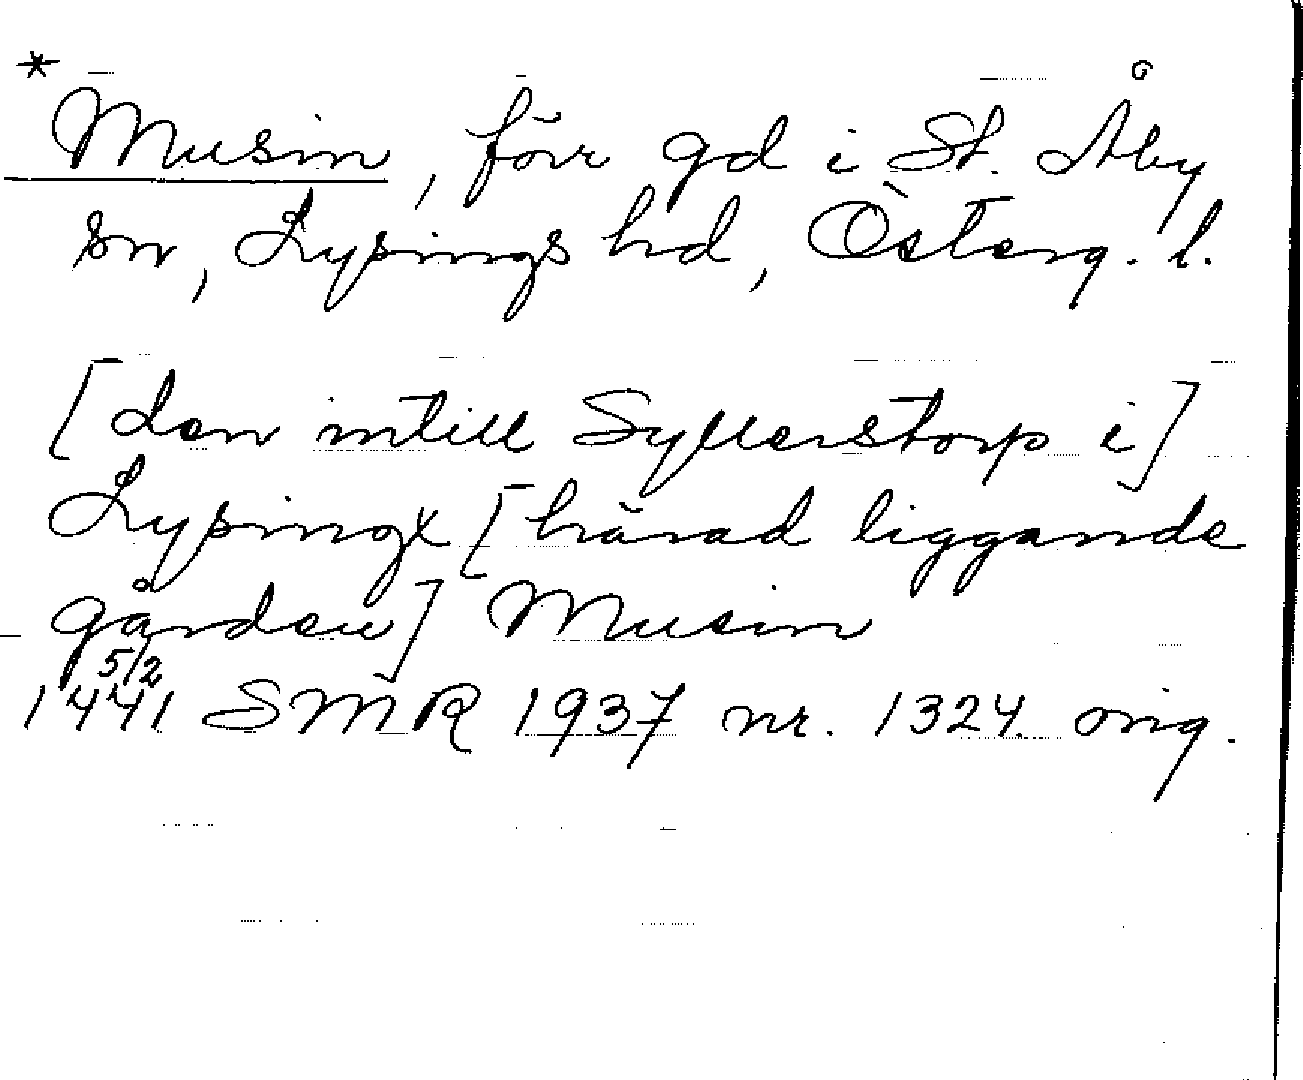 * Musin, förr gd i St. Åby
sn, Lysings hd, Österg. l.
[den intill Syllerstorp i]
Lysingx [härad liggande
gården] Musin
1441 5/2 SMR 1937 nr. 1324. orig.